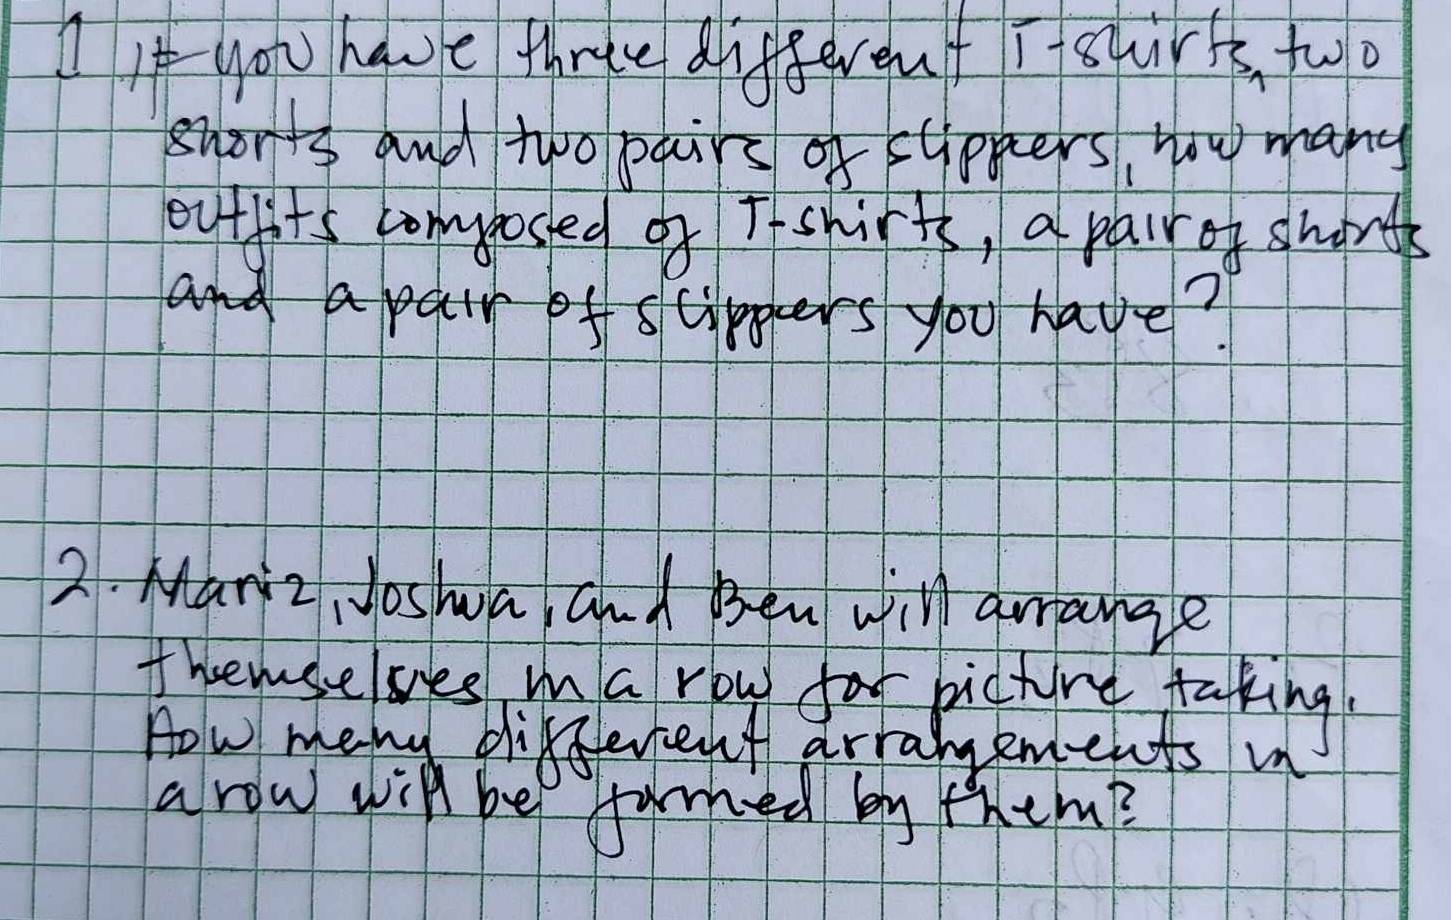 1 If you have three different T-shirts, two
shorts and two pairs of slippers, how many
outfits composed of T-shirts, a pair of shorts
and a pair of slippers you have?
2. Mariz, Joshua, and Ben will arrange
themselves in a row for picture taking.
How many different arrangements in
a row will be formed by them?